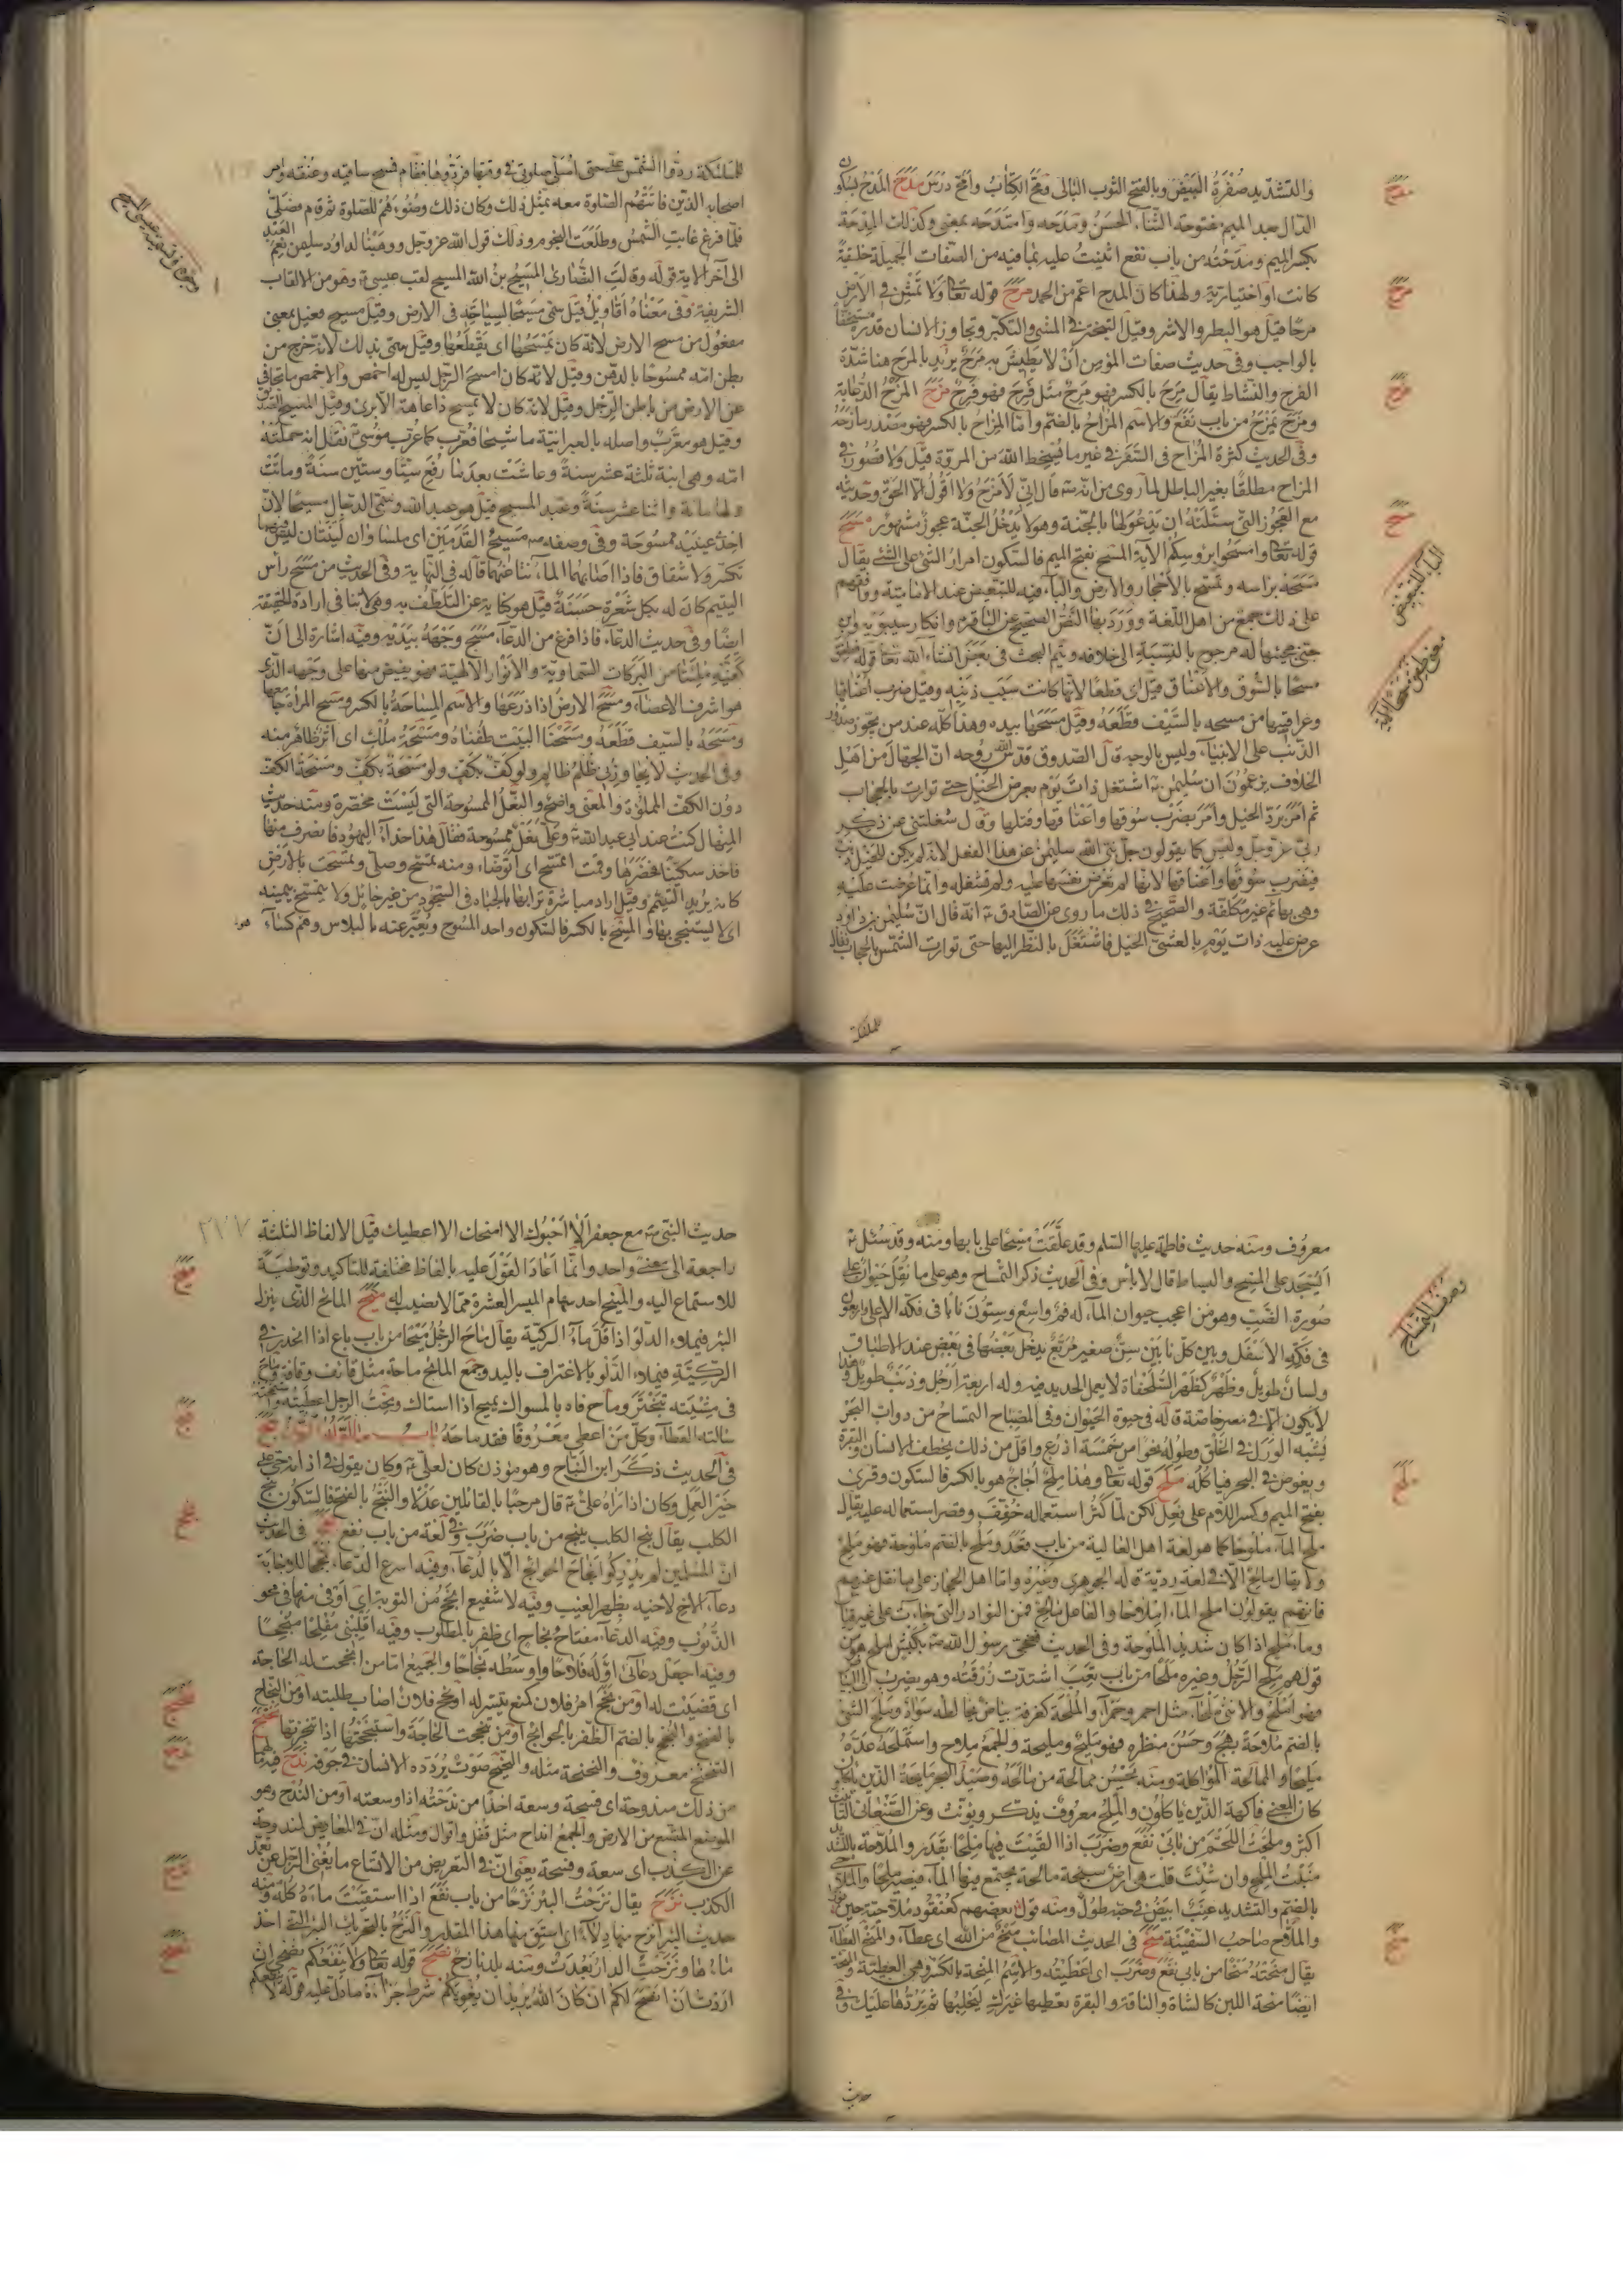 والتشديد صفرة البيض وبالفتح الثوب البالي ومح الكتاب وامح درس مدح المدح بسكون
الدال بعد الميم مفتوحة الثناء الحسن ومدحه وامتدحه بمعنى وكذلك المدحة
بكسر الميم ومدحته من باب نفع اثنيت عليه بما فيه من الصفات الجميلة خلقية
كانت او اختيارية ولهذا كان المدح اعم من الحمد مرح قوله تعا ولا تمش في الأرض
مرحا قيل هو البطر والاشر وقيل التبختر في المشي والتكبر وتجاوز الانسان قدره مستخفا
بالواجب وفي حديث صفات المؤمن ان لا يطيش به مرح يريد بالمرح هنا شدة
الفرح والنشاط يقال مرح بالكسر فهو مرح مثل فرح فهو فرح مزح المزح الدعابة
ومزح يمزح من باب نفع والاسم المزاح بالضم واما المزاح بالكسر فهو مصدر مازحه
وفي الحديث كثرة المزاح في السفر في غير ما يسخط الله من المروة قيل ولا قصور في
المزاح مطلقا بغير الباطل لما روي من انه ص قال اني لامزح ولا اقول الا الحق وحديثه
مع العجوز التي سئلته ان يدعو لها بالجنة وهو لا يدخل الجنة عجوز مشهور مسح
قوله تعا وامسحوا برؤسكم الآية المسح بفتح الميم فالسكون امرار الشئ على الشئ يقال
مسحه براسه وتمسح بالأحجار والارض والباء فيه للتبعيض عند الامامية ووافقهم
على ذلك جمع من اهل اللغة وورد بها النص الصحيح عن الباقر ع وانكار سيبويه وابن
جني مجيئها له مرجوح بالنسبة الى خلافه وتمام البحث في بعض انشاء الله تعا قوله فطفق
مسحا بالسوق والأعناق قيل اي قطعا لانها كانت سبب ذنبه وقيل ضرب اعناقها
وعراقيبها من مسحه بالسيف قطعه وقيل مسحها بيده وهذا كله عند من يجوز صدور
الذنب على الانبياء وليس بالوجه قال الصدوق قدس الله روحه ان الجهال من اهل
الخلاف يزعمون ان سليمن ع اشتغل ذات يوم بعرض الخيل حتى توارت بالحجاب
ثم امر برد الخيل وأمر بضرب سوقها واعناقها وقتلها وقال شغلتني عن ذكر
ربي عز وجل وليس كما يقولون جل نبي الله سليمن عن هذا الفعل لانه لم يكن للخيل ذنب
فيضرب سوقها واعناقها لانها لم تعرض نفسها عليه ولم تشغله وانما عرضت عليه
وهي بهائم غير مكلفة والصحيح في ذلك ما روي عن الصادق ع انه قال ان سليمن بن داود
عرض عليه ذات يوم بالعشي الخيل فاشتغل بالنظر اليها حتى توارت الشمس بالحجاب فقال
للملئكة
مدح
مرح
مزح
مسح
الباء للتبعيض
للملئكة ردوا الشمس علي حتى اصلي صلوتي في وقتها فردوها فقام فمسح ساقيه وعنقه وامر
اصحابه الذين فاتتهم الصلوة معه بمثل ذلك وكان ذلك وضوءهم للصلوة ثم قام فصلى
فلما فرغ غابت الشمس وطلعت النجوم وذلك قول الله عز وجل ووهبنا لداود سليمن نعم العبد
الى آخر الاية قوله وقالت النصارى المسيح بن الله المسيح لقب عيسى ع وهو من الالقاب
الشريفة وفي معناه أقاويل قيل سمي مسيحا لسياحته في الارض وقيل مسيح فعيل بمعنى
مفعول من مسح الارض لانه كان يمسحها اي يقطعها وقيل سمي بذلك لانه خرج من
بطن امه ممسوحا بالدهن وقيل لانه كان امسح الرجل ليس له اخمص والاخمص ما تجافى
عن الارض من باطن الرجل وقيل لانه كان لا يمسح ذا عاهة الا برئ وقيل المسيح الصديق
وقيل هو معرب واصله بالعبرانية ماشيحا فعرب كما عرب موسى ع نقل انه حملته
امه وهي ابنة ثلثة عشر سنة وعاشت بعد ما رفع ستا وستين سنة وماتت
ولها مائة واثنا عشر سنة وعبد المسيح قيل هو عبد الله وسمي الدجال مسيحا لان
احد عينيه ممسوحة وفي وصفه ص مسيح القدمين اي ملسا وان لينتان ليس بهما
تكسر ولا شقاق فاذا اصابهما الماء نبا عنهما قاله في النهاية وفي الحديث من مسح راس
اليتيم كان له بكل شعرة حسنة قيل هو كناية عن التلطف به وهي لا تنافي ارادة الحقيقة
ايضا وفي حديث الدعاء فاذا فرغ من الدعاء مسح وجهه بيديه وفيه اشارة الى ان
كفيه ملئتا من البركات السماوية والأنوار الالهية فهو يفيض منها على وجهه الذي
هو اشرف الاعضاء ومسح الارض اذا ذرعها والاسم المساحة بالكسر ومسح المرأة جامعها
ومسحه بالسيف قطعه ومسحنا البيت طفناه ومسحة ملك اي اثر ظاهر منه
وفي الحديث لا يجاوزني ظلم ظالم ولو كف بكف ولو مسحة بكف ومسحة الكف
دون الكف المملوة والمعنى واضح والنعل الممسوحة التي ليست مخصرة ومنه حديث
المنهال كنت عند ابي عبد الله ع وعلي نعل ممسوحة فقال هذا حذاء اليهود فانصرف منها
فاخذ سكينا فخصرها وقمت اتمسح اي أتوضا ومنه تمسح وصلى وتمسحت بالارض
كانه يريد التيمم وقيل اراد مباشرة ترابها بالجباه في السجود من غير حائل ولا يتمسح بيمينه
اي لا يستنجي بها والمسح بالكسر فالسكون واحد المسوح ويعبر عنه بالبلاس وهو كساء
معروف ومنه حديث فاطمة عليها السلم وقد علقت مسحا على بابها ومنه وقد سئل ع
ايسجد على المسح والبساط قال لا بأس وفي الحديث ذكر التمساح وهو على ما نقل حيوان على
صورة الضب وهو من اعجب حيوان الماء له فم واسع وستون نابا في فكه الاعلى واربعون
في فكه الاسفل وبين كل نابين سن صغير مربع يدخل بعضها في بعض عند الاطباق
ولسان طويل وظهر كظهر السلحفاة لا يعمل الحديد فيه وله اربعة ارجل وذنب طويل وهذا
لا يكون الا في مصر خاصة قاله في حيوة الحيوان وفي المصباح التمساح من دواب البحر
يشبه الورل في الخلق وطوله نحوا من خمسة اذرع واقل من ذلك يخطف الانسان والبقرة
ويغوص في البحر فياكله ملح قوله تعا وهذا ملح أجاج هو بالكسر فالسكون وقرئ
بفتح الميم وكسر اللام على فعل لكن لما كثر استعماله خفف وقصر استعماله عليه يقال
ملح الماء ملوحا كما هو لغة اهل العالية من باب قعد وملح بالضم ملوحة فهو ملح
ولا يقال مالح الا في لغة ردية قاله الجوهري وغيره واما اهل الحجاز على ما نقل عنهم
فانهم يقولون املح الماء املاحا والفاعل مالح من النوادر التي جاءت على غير قياس
وماء ملح اذا كان شديد الملوحة وفي الحديث فضحى رسول الله ص بكبش املح هو من
قولهم ملح الرجل وغيره ملحا من باب تعب اشتدت زرقته وهو يضرب الى البياض
فهو املح والانثى ملحاء مثل احمر وحمراء والملحة كغرفة بياض يخالطه سواد وملح الشئ
بالضم ملاحة بهج وحسن منظره فهو مليح ومليحة والجمع ملاح واستملحه عده
مليحا والممالحة المواكلة ومنه يحسن ممالحة من مالحه وصيد البحر مالحه الذين ياكلون
كان المعنى فاكهة الذين ياكلون والملح معروف يذكر ويؤنث وعن الصنعاني التانيث
اكثر وملحت اللحم من بابي نفع وضرب اذا القيت فيها ملحا بقدر والملاحة بالتشديد
منبت الملح وان شئت قلت هي ارض سبخة مالحة يجتمع فيها الماء فيصير ملحا والملاحي
بالضم والتشديد عنب ابيض في حبه طول ومنه قول بعضهم كعنقود ملاحية حين نورا
والملاح صاحب السفينة منح في الحديث المصائب منح من الله اي عطاء والمنح العطاء
يقال منحته منحا من بابي نفع وضرب اي اعطيته والاسم المنحة بالكسر وهي العطية والمنحة
ايضا منحة اللبن كالشاة والناقة والبقرة تعطيها غيرك ليحلبها ثم يردها عليك وفي
حديث
ملح
منح
وصف التمساح
٢٧٧
حديث النبي ص مع جعفر ألا أحبوك الا امنحك الا اعطيك قيل الالفاظ الثلثة
راجعة الى معنى واحد وانما أعاد القول عليه بالفاظ مختلفة للتاكيد وتوطية
للاستماع اليه والمنيح احد سهام الميسر العشرة مما لا نصيب له ميح المائح الذي ينزل
البئر فيملاء الدلو اذا قل ماء الركية يقال ماح الرجل ميحا من باب باع اذا انحدر في
الركية فيملاء الدلو بالاغتراف باليد وجمع المائح ماحة مثل قائف وقافة وماح
في مشيته تبختر وماح فاه بالمسواك يميح اذا استاك ومحت الرجل اعطيته واستمحته
سالته العطاء وكل من اعطى معروفا فقد ماحه باب ما اوله النون نبح
في الحديث ذكر ابن النباح وهو مؤذن كان لعلي ع وكان يقول في اذانه حي على
خير العمل وكان اذا راه علي ع قال مرحبا بالقائلين عدلا والنبح بالفتح فالسكون نبح
الكلب يقال نبح الكلب ينبح من باب ضرب وفي لغة من باب نفع نجح في الحديث
ان المسلمين لم يدركوا نجاح الحوائج الا بالدعاء وفيه اسرع الدعاء نجحا للاجابة
دعاء الاخ لاخيه بظهر الغيب وفيه لا شفيع انجح من التوبة اي أوفى منها في محو
الذنوب وفيه الدعاء مفتاح نجاح اي ظفر بالمطلوب وفيه اقلبني مفلحا منجحا
وفيه اجعل دعائي اوله فلاحا واوسطه نجاحا والجميع اما من انجحت له الحاجة
اي قضيت له او من نجح امر فلان كمنع تيسر له او نجح فلان اصاب طلبته او من النجاح
بالفتح والنجح بالضم الظفر بالحوائج او من تنجحت الحاجة واستنجحتها اذا تنجزتها نحح
التنحنح معروف والنحنحة مثله والنحيح صوت يردده الانسان في جوفه ندح فيه
من ذلك مندوحة اي فسحة وسعة اخذا من ندحته اذا وسعته او من الندح وهو
الموضع المتسع من الارض والجمع انداح مثل قفل واقفال ومثله ان في المعاريض لمندوحة
عن الكذب اي سعة وفسحة يعني ان في التعريض من الاتساع ما يغني الرجل عن تعمد
الكذب نزح يقال نزحت البئر نزحا من باب نفع اذا استقيت ماءه كله ومنه
حديث البئر انزح منها دلاء اي استق منها هذا المقدار والنزح بالتحريك البئر التي اخذ
ماءها ونزحت الدار بعدت ومنه بلد نازح نصح قوله تعا ولا ينفعكم نصحي ان
اردت ان انصح لكم ان كان الله يريد ان يغويكم شرط جزاءه ما دل عليه قوله لا ينفعكم
ميح
نبح
نجح
نحح
ندح
نزح
نصح